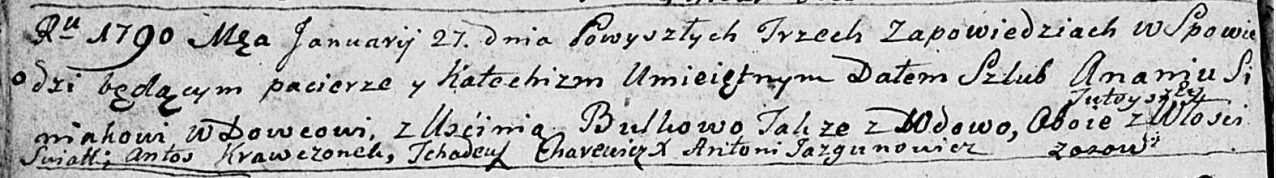 Ru 1790 Mca Januarij 27. dnia Powyszłych Trzech Zapowiedziach w Spowie
dzi będącym pacierze y Katechizm Umieiętnym Dałem Szlub Ananiu Si
niakowi Wdowcowi, z Uscinią Bulkowo Takze z Wdowo, Oboie z Włosci
Swiatki Antos Krawczonek, Tchadeusz Charewicz X Antoni Jazgunowicz